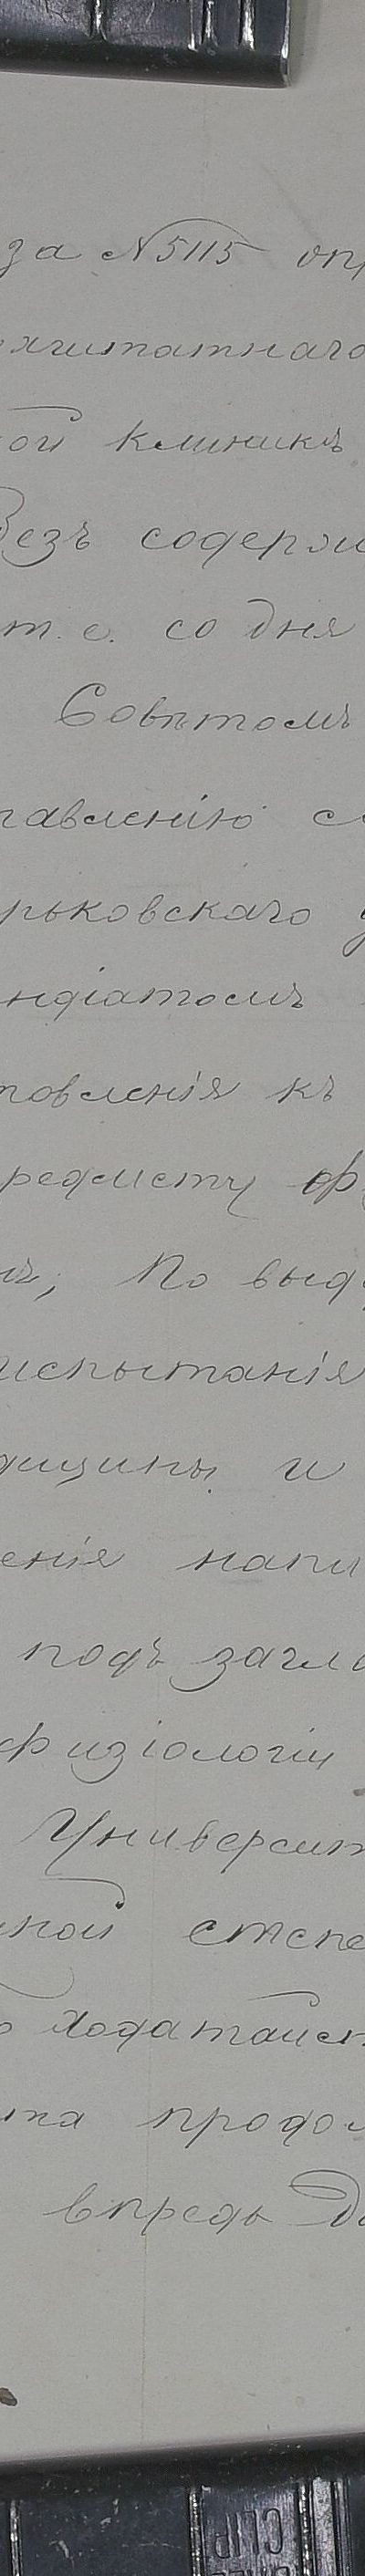 за №5115 опр
ерхштатнаго
ой клиникѣ
Безъ содерж
т. е. со дня
Совѣтомъ
тавленію
рьковскаго у
ндіатомъ
товленія къ
редмету ф
По выд
испытанія
дицины и
енія напи
подъ загла
физіологіи
Университ
ной степе
ходатайст
та продол
впредь До
CLIP